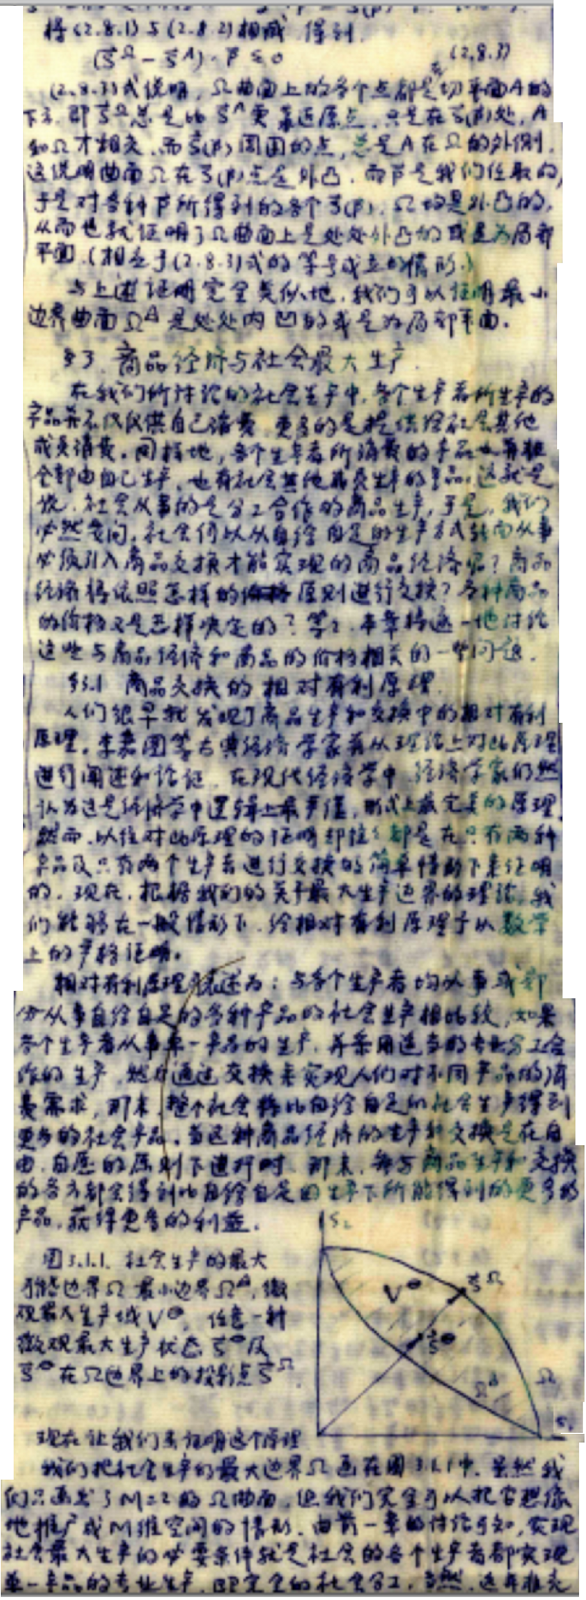 将(2.8.1)与(2.8.2)相减,得到
(S^Ω - S^A)·P ≤ 0 (2.8.3)
(2.8.3)式说明,Ω曲面上的各个点都是在切平面A的
下方,即S^Ω总是比S^A更靠近原点,只是在S(P)处,A
和Ω才相交,而S(P)周围的点,总是A在Ω的外侧.
这说明曲面Ω在S(P)点是外凸.而P是我们任取的,
于是对各种P所得到的各个S(P),Ω均是外凸的,
从而也就证明了Ω曲面上是处处外凸的或是为局部
平面.(相应于(2.8.3)式的等号成立的情形.)
与上述证明完全类似地,我们可以证明最小
边界曲面Ω^A是处处内凹的或是为局部平面.
§3. 商品经济与社会最大生产.
在我们所讨论的社会生产中,各个生产者所生产的
产品并不仅仅供自己消费,更多的是提供给社会其他
成员消费.同样地,各个生产者所消费的产品也
全部由自己生产,也有社会其他成员生产的产品.这就是
说,社会从事的是分工合作的商品生产,于是,我们
必然要问,社会何以从自给自足的生产方式转而从事
必须引入商品交换才能实现的商品经济呢?商品
经济将依照怎样的原则进行交换?各种商品
的价格又是怎样决定的?等等.本章将逐一地讨论
这些与商品经济和商品的价格相关的一些问题.
§3.1 商品交换的相对有利原理.
人们很早就发现了商品生产和交换中的相对有利
原理.李嘉图等古典经济学家曾从理论上对此原理
进行阐述和论证.在现代经济学中,经济学家们
认为这是经济学中逻辑上最严谨,形式上最完美的原理.
然而,以往对此原理的证明却往往都是在只有两种
产品及只有两个生产者进行交换的简单情形下来证明
的.现在,根据我们的关于最大生产边界的理论,我
们能够在一般情形下,给相对有利原理予以数学
上的严格证明.
相对有利原理表述为:与各个生产者均从事或部
分从事自给自足的各种产品的社会生产相比较,如果
各个生产者从事单一产品的生产,并采用适当的专业分工合
作的生产,然后通过交换来实现人们对不同产品的消
费需求,那末,整个社会将比自给自足的社会生产得到
更多的社会产品.当这种商品经济的生产和交换是在自
由、自愿的原则下进行时,那末,参与商品生产和交换
的各方都会得到比自给自足的生产下所能得到的更多的
产品,获得更多的利益.
图3.1.1.社会生产的最大
可能边界Ω 最小边界Ω^A,微
观最大生产域V^⊖.任意一种
微观最大生产状态S^⊖及
S^⊖在Ω边界上的投影点S^Ω.
S₂
V^⊖
S^Ω
S^⊖
Ω^A
Ω
S₁
现在让我们来证明这个原理.
我们把社会生产的最大边界Ω画在图3.1.1中.虽然我
们只画出了M=2的Ω曲面,但我们完全可以把它想像
地推广成M维空间的情形.由前一章的讨论可知,实现
社会最大生产的必要条件就是社会的各个生产者都实现
单一产品的专业生产,即完全的社会分工.当然,这并非充